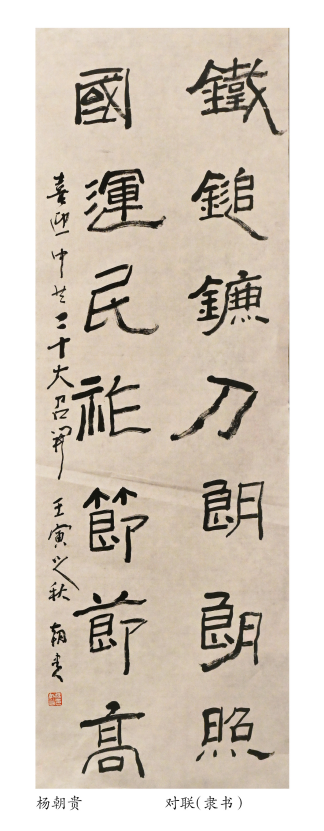 鐵鎚鐮刀朗朗照
國運民祚節節高
喜迎中共二十大召开 壬寅之秋 朝贵
杨朝贵 对联(隶书)